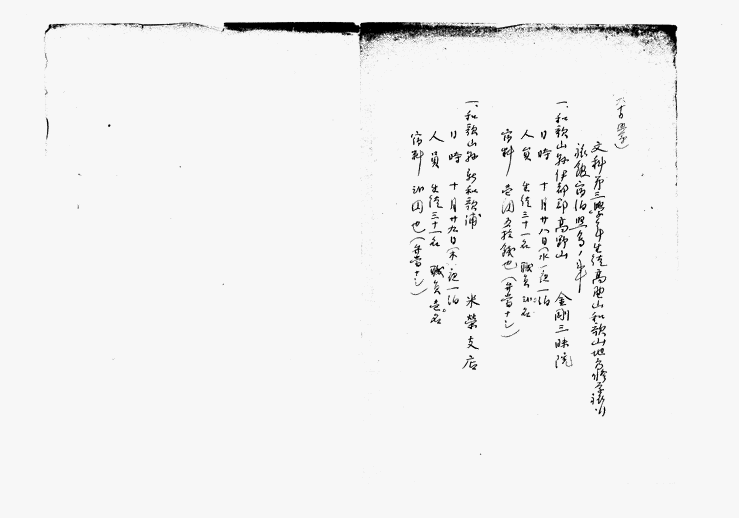 文科第三學年生徒高野山和歌山地方修学旅行
旅館宿泊照會ノ件
一、和歌山縣伊都郡高野山 金剛三昧院
日時 十月廿八日(水)夜一泊
人員 生徒三十一名 職員 名
宿料 壱圓五拾銭也(弁當ナシ)
一、和歌山縣新和歌浦 米榮支店
日時 十月廿九日(木)夜一泊
人員 生徒三十一名 職員壱名
宿料 圓也(弁當ナシ)